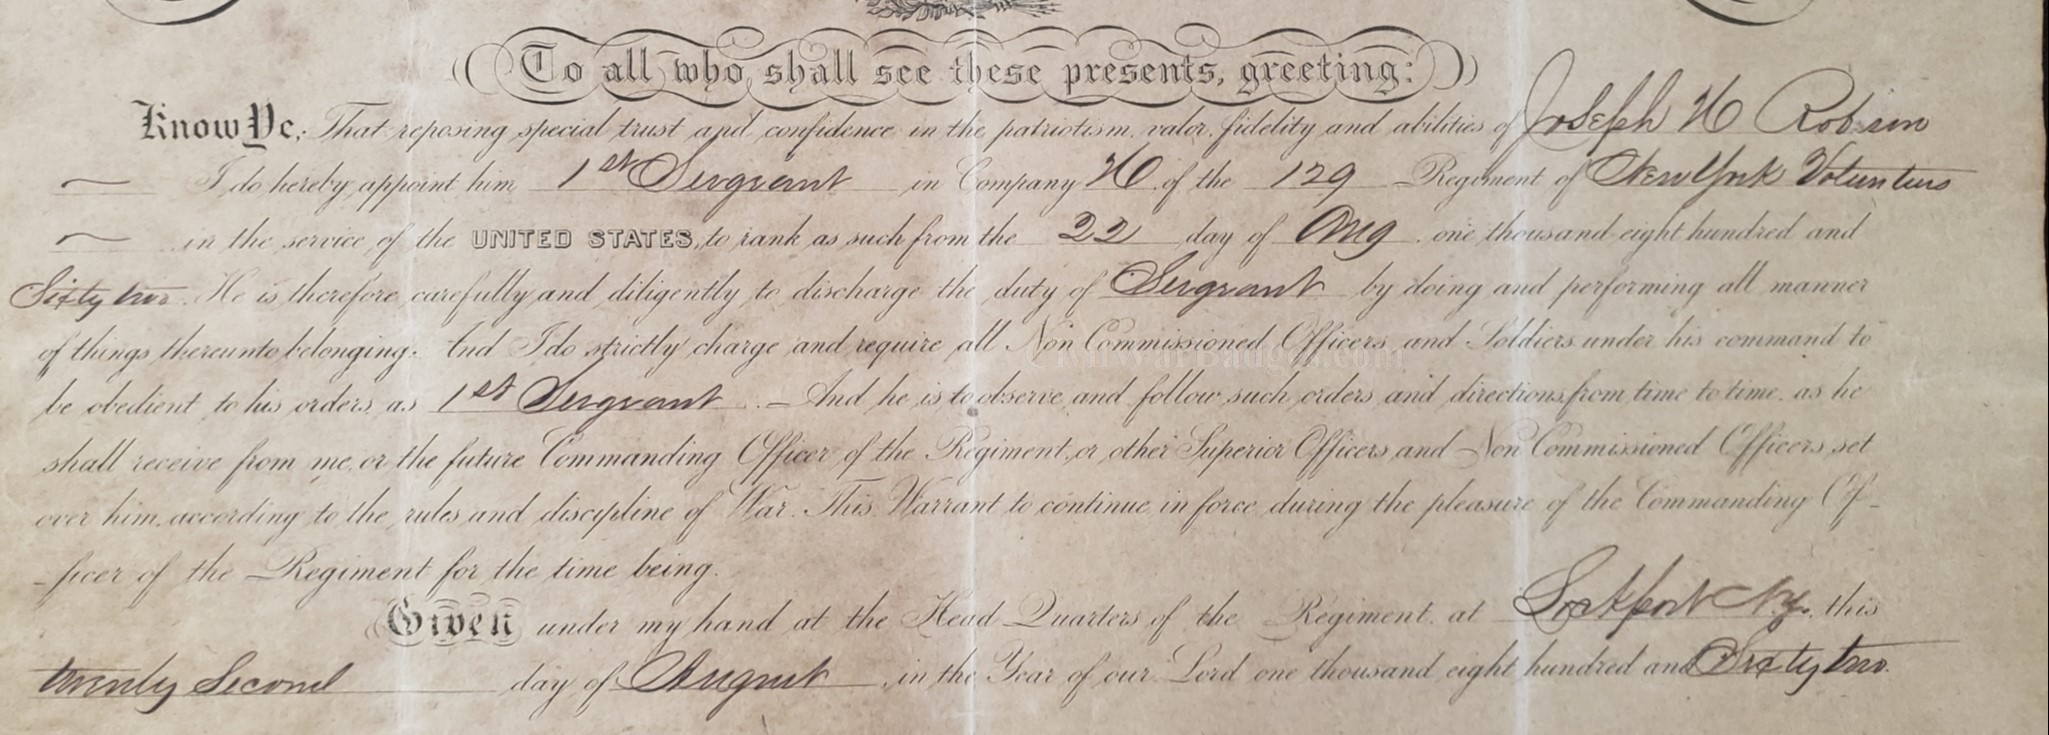 To all who shall see these presents, greeting:
Know Ye, That reposing special trust and confidence in the patriotism, valor, fidelity and abilities of Joseph H Robson
I do hereby appoint him 1st Sergeant in Company H of the 129 Regiment of New York Volunteers
in the service of the UNITED STATES, to rank as such from the 22 day of Aug. one thousand eight hundred and
Sixty two. He is therefore carefully and diligently to discharge the duty of Sergeant by doing and performing all manner
of things thereunto belonging. And I do strictly charge and require all Non Commissioned Officers and Soldiers under his command to
be obedient to his orders as 1st Sergeant. And he is to observe and follow such orders and directions from time to time, as he
shall receive from me, or the future Commanding Officer of the Regiment, or other Superior Officers and Non Commissioned Officers set
over him, according to the rules and discipline of War. This Warrant to continue in force during the pleasure of the Commanding Of-
-ficer of the Regiment for the time being.
Given under my hand at the Head Quarters of the Regiment, at Lockport N.Y. this
twenty Second day of August, in the Year of our Lord one thousand eight hundred and Sixty two.